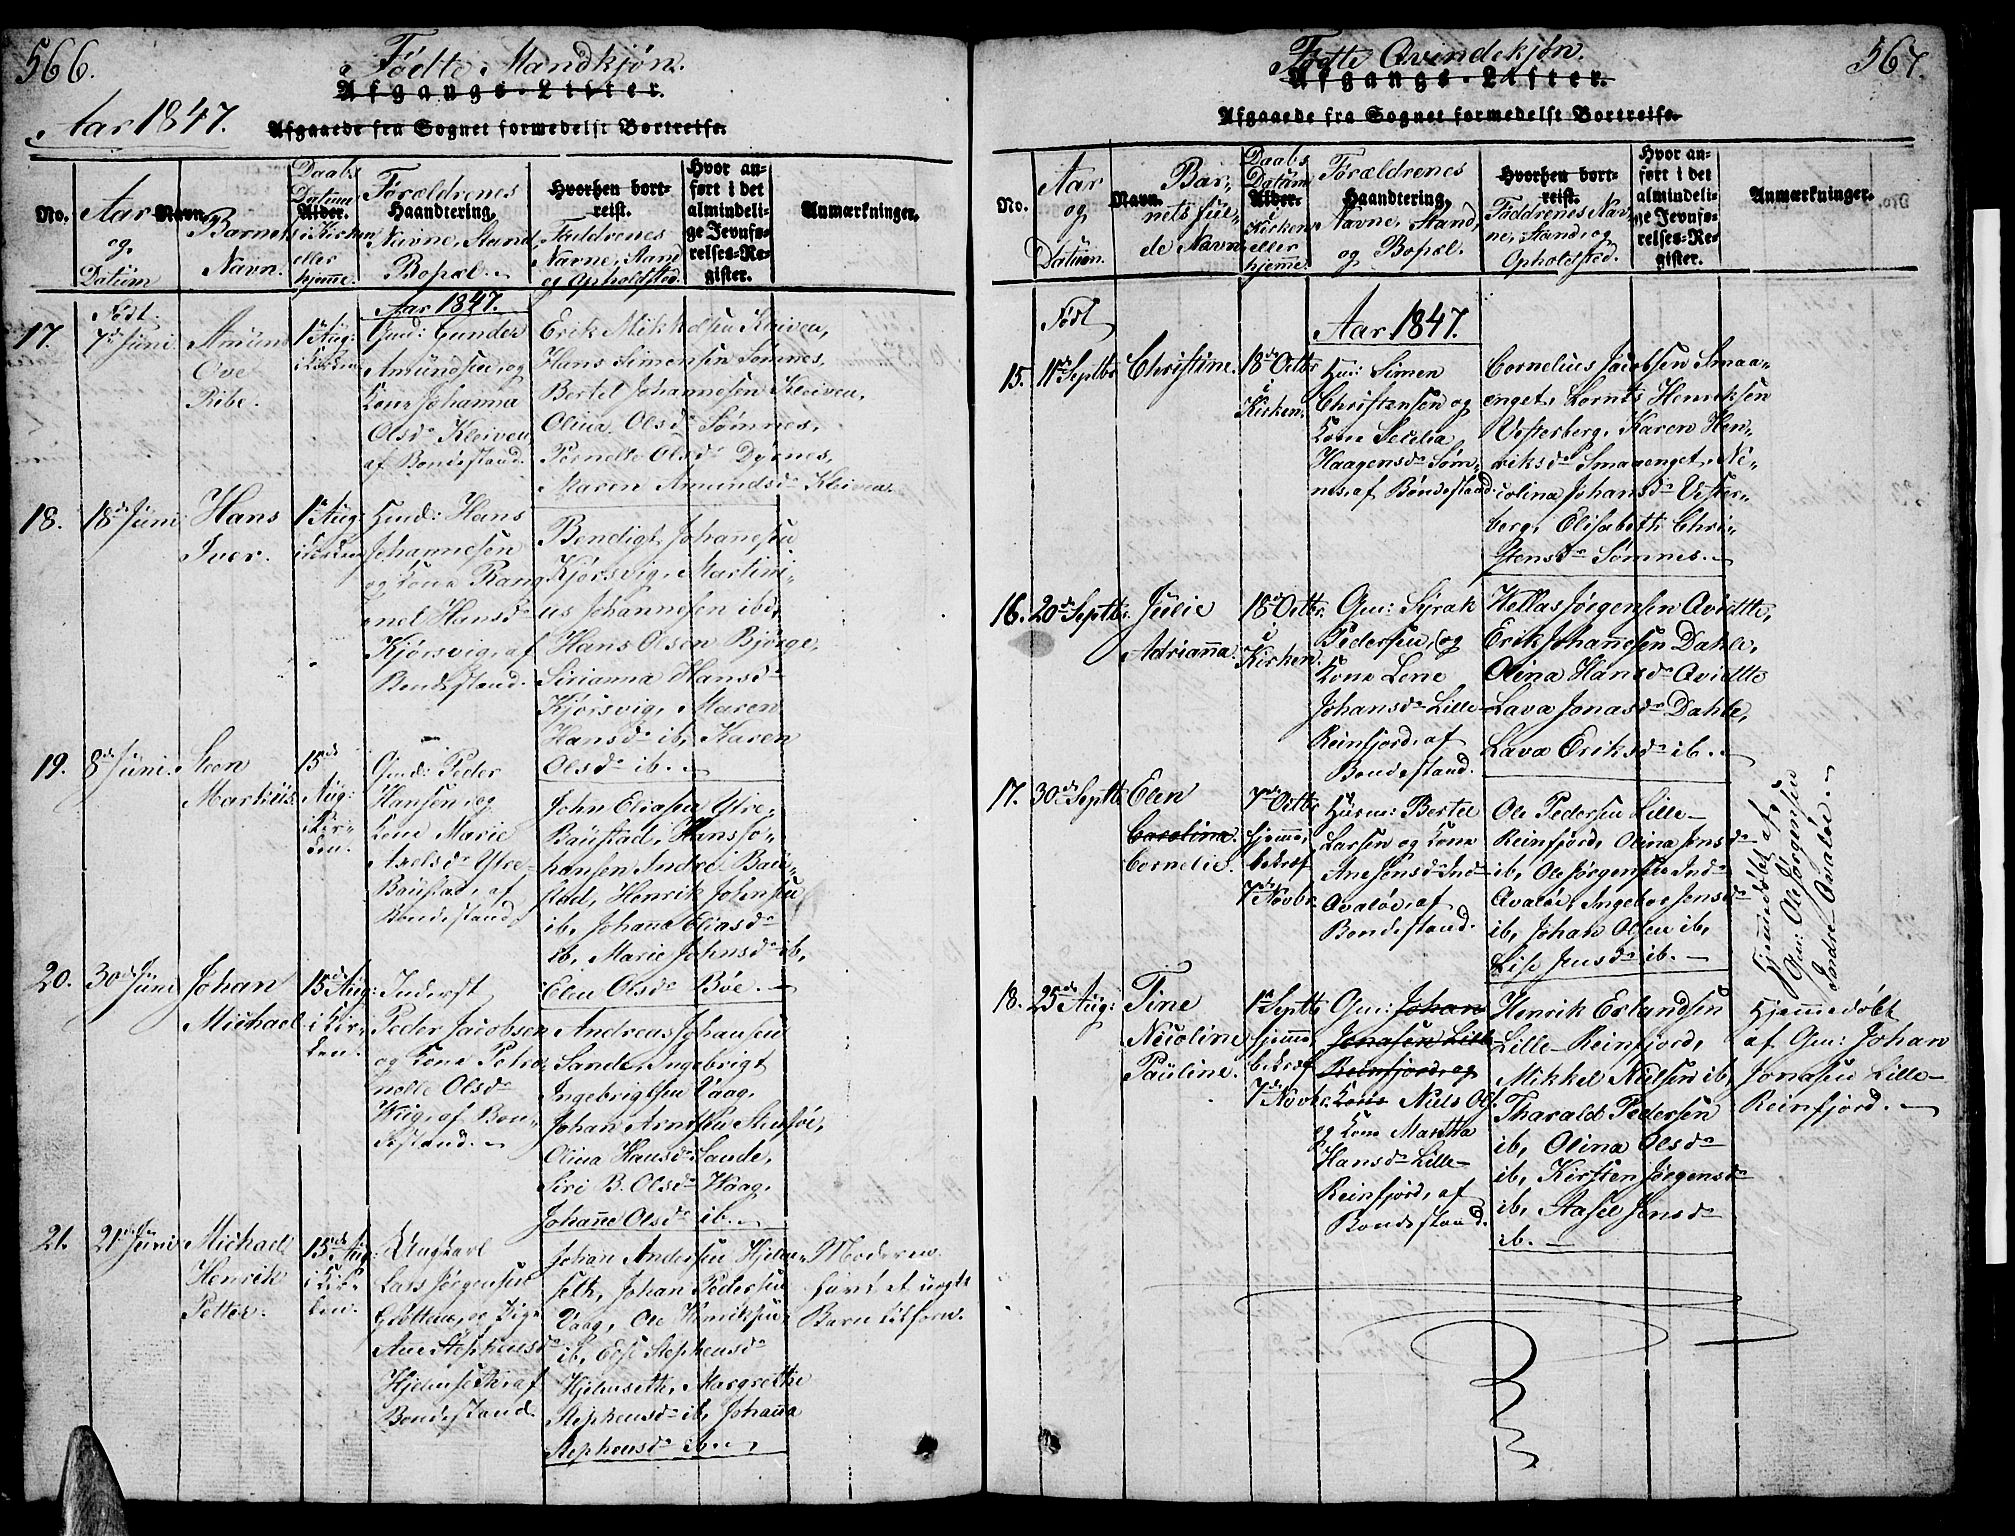 566.
Fødte Mandkjøn.
Afgangs-Lister.
Aar 1847.
Afgaaede fra Sognet formedelst Bortreise.
No.
Aar
og
Datum
Navn.
Barnets
Navn.
Daabs
Datum
Alder.
i Kirken
eller
hjemme.
Forældrenes
Haandtering.
Navne, Stand
Bopæl.
Hvorhen bort-
reist.
Faddrenes
Navne, Stand
og Opholdsted.
Hvor an-
ført i det
almindeli-
ge Jevnfø-
relses-Re-
gister.
Anmærkninger.
Aar 1847.
Født.
17.
7de Juni.
Amund
Ove
Ribe.
1ste Aug:
i Kirken
Gaard: Gunder
Amundsen, og
Kone Johanna
Olsdr Kleiven
af Bondestand.
Erik Mikkelsen Kleiven,
Hans Simensen Sømnes,
Bertel Johannesen Kleiven,
Olina Olsdr Sømnes,
Pernelle Olsdr Dyrnes,
Maren Amundsdr Kleiven.
18.
18de Juni
Hans
Iver.
1ste Aug:
i Kirken
Huusd: Hans
Johannesen
og Kone Rang
nel Hansdr
Kjørsvig, af
Bondestand.
Bendigt Johannesen
Kjørsvig, Martini-
us Johannesen ibi,
Hans Olsen Bjørge,
Sirianna Hansdr
Kjørsvig, Maren
Hansdr ib, Karen
Olsdr ib.
19.
8de Juni.
Steen
Martinus
15de
Aug:
i Kir-
ken.
Gmd: Peder
Hansen, og
Kone Marie
Axelsdr Ytre-
Baustad, af
Bondestand.
John Eliasen Ytre-
Baustad, Hans Jo-
hansen Indre Bau-
stad, Henrik Johnsen
ib, Johanna Eliasdr
ib, Marie Johnsdr ib,
Elen Olsdr Bøe.
20.
30de Juni
Johan
Michael
15de Aug:
i Kir-
ken.
Inderst
Peder Jacobsen
og Kone Petro
nelle Olsdr
Wiig, af Bon-
destand.
Andreas Johansen
Sande, Ingebrigt
Ingebrigtsen Vaag,
Johan Arntsen Stensøe,
Olina Hansdr Sande,
Siri B. Olsdr Waag,
Johanne Olsdr ib.
21.
21de Juni
Michael
Henrik
Petter.
15de Aug:
i Kir-
ken.
Ungkarl
Lars Jørgensen
Grøtten, og Pige
Ane Stephensdr
Hjelmseth, af
Bondestand.
Johan Andersen Hjelm-
seth, Johan Pedersen
Vaag, Ole Henriksen
ib, Else Stephensdr
Hjelmseth, Margrethe
Stephensdr ib, Johanna
Stephensdr ib.
Moderen
havt et uægte
Barn tilforn.
567.
Fødte Qvindekjøn.
Afgangs-Lister.
Afgaaede fra Sognet formedelst Bortreise.
No.
Aar
og
Datum.
Navn.
Bar-
nets ful-
de Navn
Daabs
Datum
Alder.
i
Kirken
eller
hjemme.
Forældrenes
Haandtering.
Navne, Stand,
og Bopæl.
Hvorhen bort-
reist.
Faddrenes Nav-
ne, Stand, og
Opholdsted.
Hvor an-
ført i det
almindeli-
ge Jevnfø-
relses-Re-
gister.
Anmærkninger.
No.
Født
Aar 1847.
15.
11te Septbr
Christine.
18de Octbr
i
Kirken.
Huu: Simen
Christensen og
Kone Sellia
Haagensdr Søm-
nes, af Bondestand.
Cornelius Jacobsen Smaa-
enget, Lornts Henriksen
Vesterberg, Karen Hen-
riksdr Smaaenget, Ni-
colina Johansdr Vester-
berg, Elisabeth Chri-
stensdr Sømnes.
16.
20de Septbr.
Julie
Adrianna.
18de Octbr.
i
Kirken.
Gm: Syrak
Pedersen, og
Kone Lene
Johansdr Lille-
Reinfjord, af
Bondestand.
Hellas Jørgensen Qvidtte,
Erik Johannesen Dahle,
Olina Hansdr Qvidtte
Lava Jonasdr Dahle,
Lava Eriksdr ib.
17.
30de Septbr
Elen
Carolina.
Cornelie.
7de Octbr
hjemme,
bekræf
7de Novbr.
Husm: Bertel
Larsen og Kone
Ane Jensdr Ind-
Qvaløe, af
Bondestand.
Ole Pedersen Lille-
Reinfjord, Olina Jensdr
ib, Ole Jørgensen Ind-
Qvaløe, Ingeborg Jensdr
ib, Johan Olsen ib,
Lise Jensdr ib.
Hjemmedøbt af
Gm: Ole Jørgensen
Indre-Qvaløe.
18.
25de Aug:
Tine
Nicoline
Pauline.
1ste Septbr
hjemme,
bekræf
7de Novbr.
Gm: Johan
Jonasen Lille-
Reinfjord, og
Kone Niels Ols.
og Kone Martha
Hansdr Lille-
Reinfjord, af
Bondestand.
Henrik Erlandsen
Lille-Reinfjord,
Mikkel Nielsen ib,
Tharald Pedersen
ib, Olina Olsdr
ib, Kirsten Jørgensdr
ib, Aasel Jensdr
ib.
Hjemmedøbt
af Gm: Johan
Jonasen Lille-
Reinfjord.